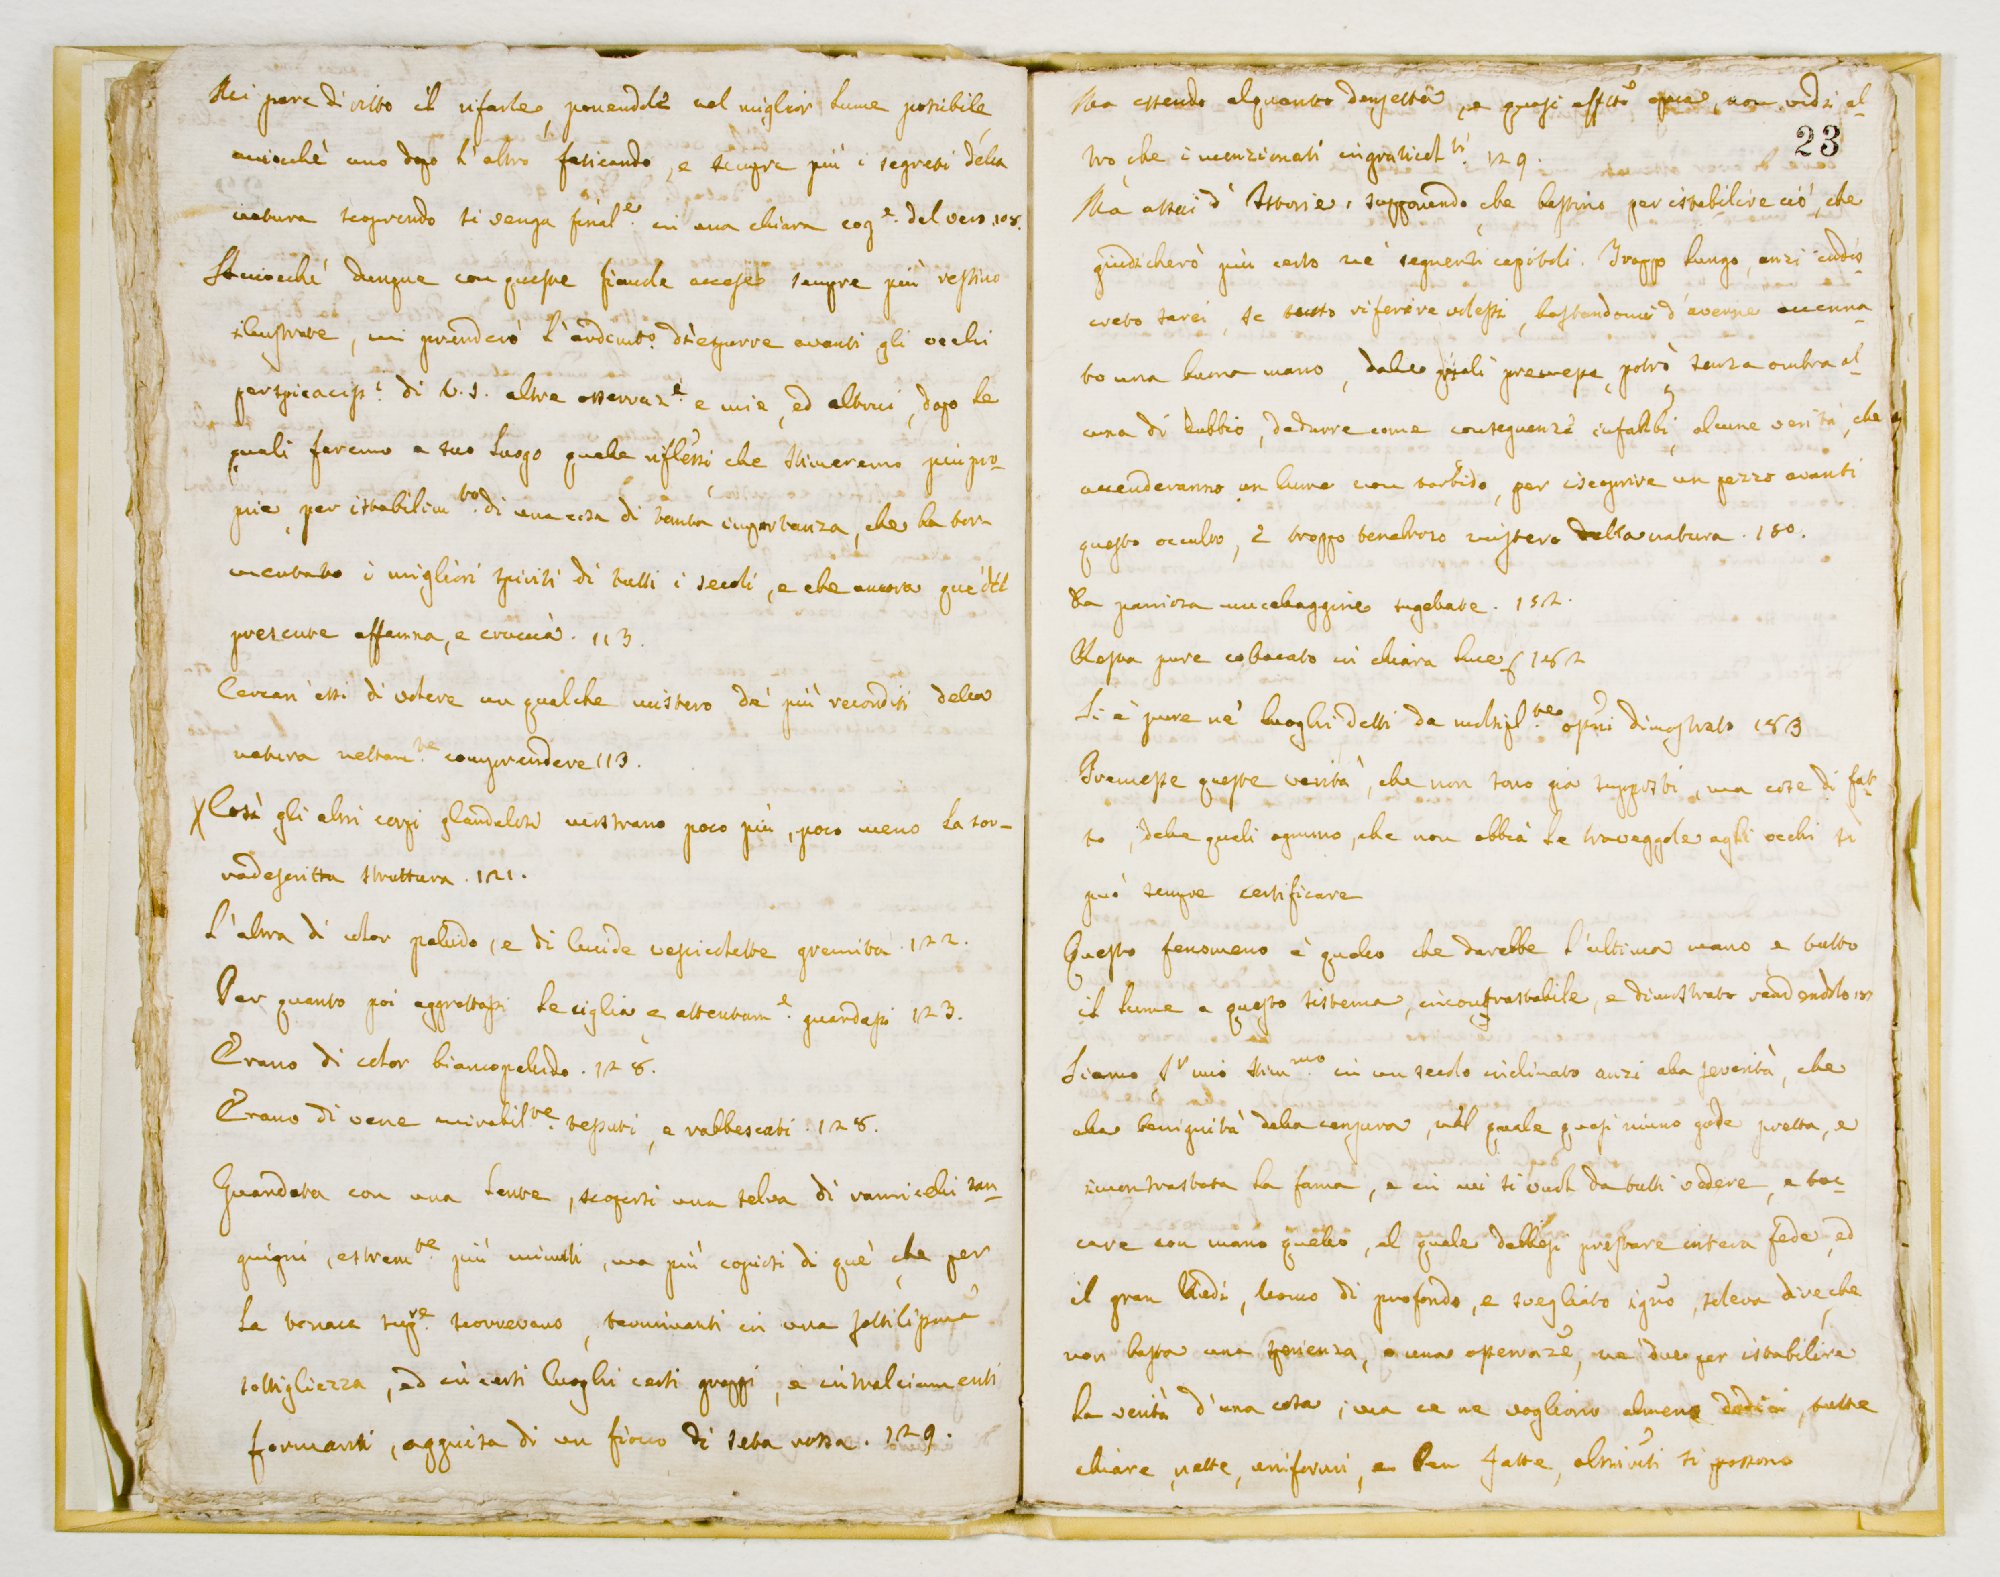 Mi pare di visto il rifarle, ponendole nel miglior lume possibile
acciocchè uno dopo l'altro faticando, e sempre più i segreti della
natura scoprendo si venga final.e in una chiara cog.e del vero. 108.
Acciocchè dunque con queste fiaccole accese sempre più restino
illustrate, mi prenderò l'ardim.to d'esporre avanti gli occhi
perspicaciss.i di V.S. altre osservaz.e e mie, ed altrui, dopo le
quali faremo a suo luogo qualche riflessi che stimeremo più pro-
prie, per istabilim.to di una cosa di tanta importanza, che ha tor-
mentato i migliori spiriti di tutti i secoli, e che ancora que' del
presente affanna, e cruccia. 113.
Cercan'essi di volere un qualche mistero de' più reconditi della
natura nettam.te comprendere 113.
Così gli altri corpi glandulosi mostrano poco più, poco meno la sov-
radescritta struttura. 121.
L'altra di color pallido, e di lucide vescichette gremita. 122.
Per quanto poi aggrottassi le ciglia e attentam.e guardassi 123.
Erano di color biancopallido. 128.
Erano di vene mirabil.te tessuti, e rabbescati. 128.
Guardata con una lente, scopersi una selva di ramicelli san-
guigni, estrem.te più minuti, ma più copiosi di que' che per
la tonaca sup.re scorrevano, terminanti in una sottilissima
sottigliezza, ed in certi luoghi certi groppi, e intralciamenti
formanti, agguisa di un fiocco di seta rossa. 129.
Ma essendo alquanto dupetta, e quasi affatto, non vidi al-
23
tro, che i menzionati ingraticol.ti 129.
Ma assai d'Istorie, supponendo, che bastino per istabilire ciò, che
giudicherò più certo ne' seguenti capitoli. Troppo lungo, anzi indis-
creto sarei, se tutto riferire volessi, bastandomi d'averne accenna-
to una buona mano, dalle quali premesse, potrò senza ombra al-
cuna di dubbio, dedurre come conseguenze infallibi, alcune verità, che
accenderanno un lume non torbido, per iscoprire un pezzo avanti
questo occulto, e troppo tenebroso mistero della natura. 180.
La paniosa mucellaggine sugellate. 152.
Resta pure collocato in chiara luce 182
Si è pure ne' luoghi detti da moltipl.te opni dimostrato 183
Premesse queste verità, che non sono già supposti, ma cose di fat-
to, delle quali ognuno, che non abbia le traveggole agli occhi si
può sempre certificare
Questo fenomeno è quello che darebbe l'ultima mano e tutto
il lume a questo sistema, incontrastabile, e dimostrato rendendolo
Siamo S.r mio Stim.mo in un secolo inclinato anzi alla severità, che
alla benignità della censura, nel quale quasi niuno gode pretta, e
incontrastata la fama, e in cui si vuol da tutti vedere, e toc-
care con mano quello, al quale debbesi prestare intera fede, ed
il gran Redi, huomo di profondo, e svegliato igno, soleva dire, che
non basta una sperienza, o una osservaze, ne due per istabilire
la verità d'una cosa, ma ce ne vogliono almeno dodici, tutte
chiare, nette, uniformi, e ben fatte, altrimti si possono